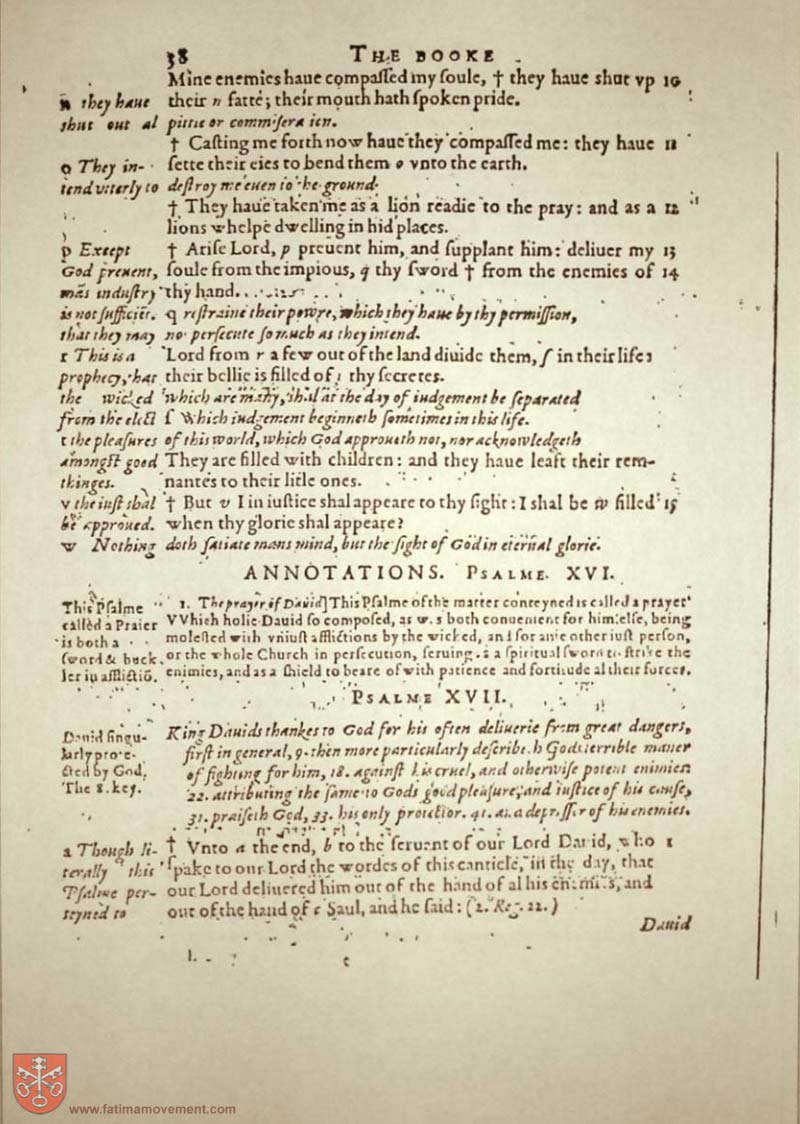 38 THE BOOKE
Mine enemies haue compaſſed my ſoule, † they haue shut vp 10
n they haue their n fatte; their mouth hath ſpoken pride.
shut out al pittie or
† Caſting me forth now haue they compaſſed me: they haue 11
o They in- ſette their eies to bend them o vnto the earth.
tend vtterly to deſtroy me euen to the ground.
† They haue taken me as a lion readie to the pray: and as a 12
lions whelpe dwelling in hid places.
p Except † Ariſe Lord, p preuent him, and ſupplant him: deliuer my 13
God preuent, ſoule from the impious, q thy ſword † from the enemies of 14
mãs induſtry thy hand.
is not ſufficiẽt. q reſtraine their powre, which they haue by thy permiſſion,
that they may no perſecute ſo much as they intend.
r This is a Lord from r a few out of the land diuide them, ſ in their life:
prophecy, that their bellie is filled of t thy ſecretes.
the wicked which are many, ſhal at the day of iudgement be ſeparated
from the elect ſ Which iudgement beginneth ſometimes in this life.
t the pleaſures of this world, which God approueth not, nor acknowledgeth
amongſt good They are filled with children: and they haue leaft their rem-
thinges. nantes to their litle ones.
v the iuſt shal † But v I in iuſtice shal appeare to thy ſight: I shal be w filled 15
be approued. when thy glorie shal appeare?
w Nothing doth ſatiate mans mind, but the ſight of God in eternal glorie.
ANNOTATIONS. PSALME. XVI.
This Pſalme 1. The prayer of Dauid] This Pſalme of the matter conteyned is called a prayer
called a Praier VVhich holie Dauid ſo compoſed, as w.s both conuenient for himſelfe, being
is both a moleſted with vniuſt afflictions by the wicked, and for anie other iuſt perſon,
ſword & buck. or the whole Church in perſecution, ſeruing .s a ſpiritual ſword to ſtrike the
ler in afflictiõ. enimies, and as a shield to beare of with patience and fortitude al their forces.
PSALME XVII.
Dauid ſingu- King Dauids thankes to God for his often deliuerie from great dangers,
larly prote- firſt in general, 9. then more particularly deſcribeth Gods terrible maner
cted by God. of fighting for him, 18. againſt his cruel, and otherwiſe potent enimies
The 8. key. 22. attributing the ſame to Gods good pleaſure, and iuſtice of his cauſe,
31. praiſeth God, 33. his only protector. 41. as a depreſſer of his enemies.
a Though li- † Vnto a the end, b to the ſeruent of our Lord Dauid, who 1
terally this ſpake to our Lord the wordes of this canticle, in the day, that
Pſalme per- our Lord deliuered him out of the hand of al his enemies, and
teyned to out of the hand of c Saul, and he ſaid: (2. Reg. 22.)
Dauid
www.fatimamovement.com